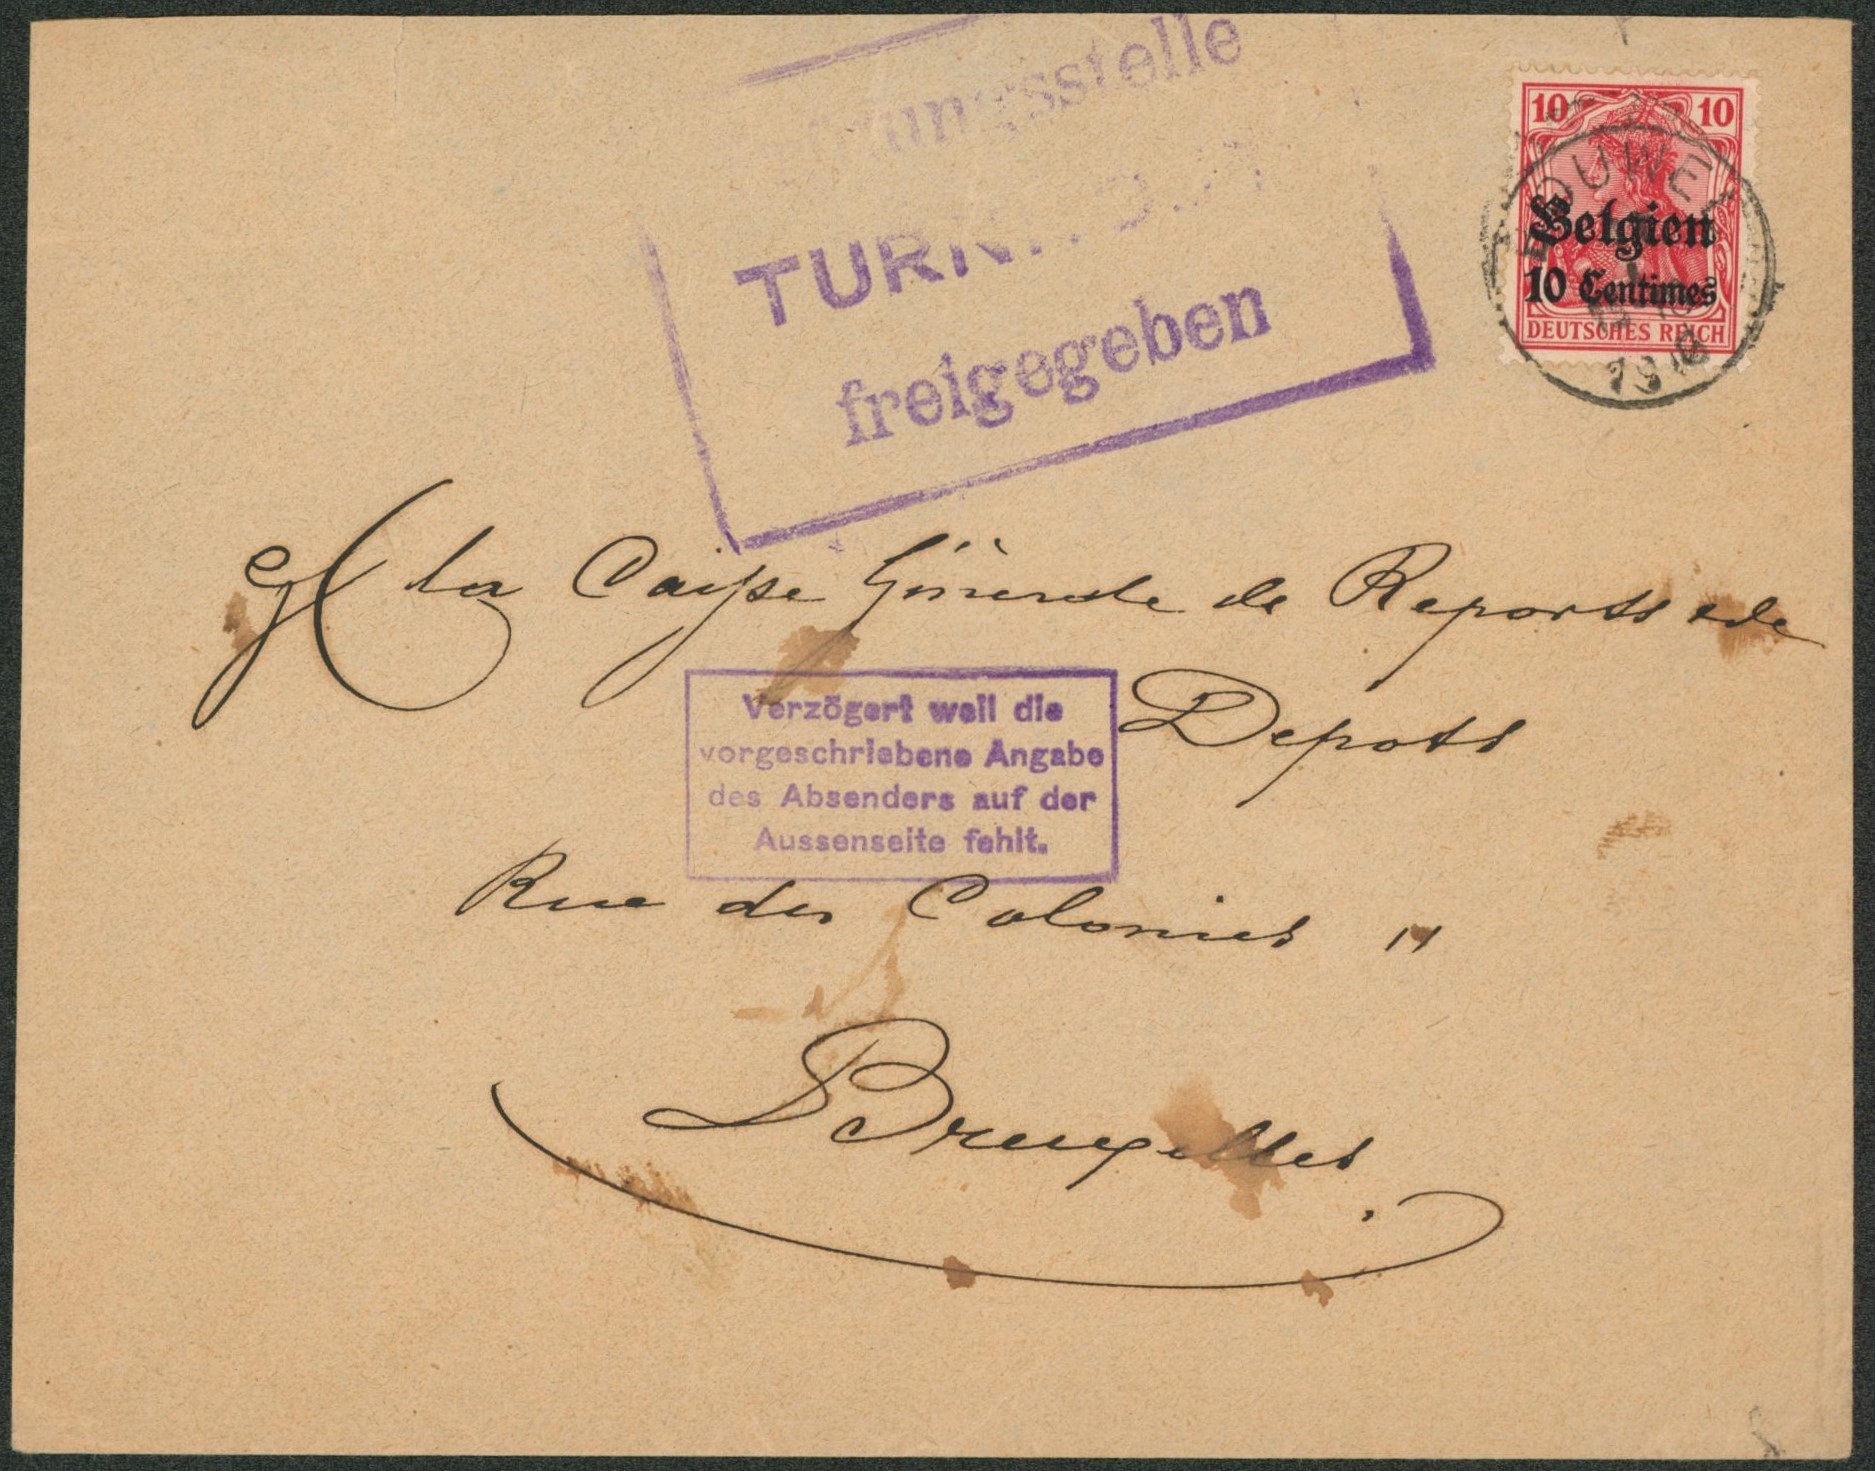 10 10
Belgien
10 Centimes
DEUTSCHES REICH
TURN
freigegeben
la Caisse Générale de Reports et de
Depots
Verzögert weil die
vorgeschriebene Angabe
des Absenders auf der
Aussenseite fehlt.
Rue des Colonies 11
Bruxelles